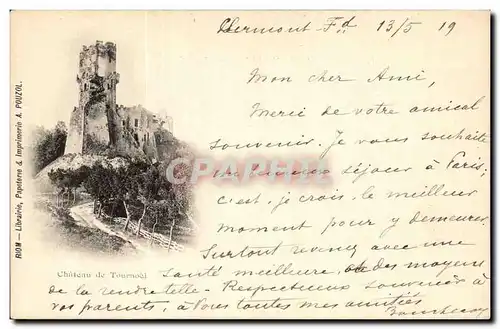 Clermont Fd 13/5 19
Mon cher Ami,
Merci de votre amical
souvenir. Je vous souhaite
un heureux séjour à Paris,
c'est, je crois, le meilleur
moment pour y demeurer.
Surtout revenez avec une
Santé meilleure, et des moyens
de la rendre telle - Respectueux souvenir à
vos parents, à Vous toutes mes amitiés
RIOM — Librairie, Papeterie & Imprimerie A. POUZOL.
Château de Tournoël
CPARAMA.COM